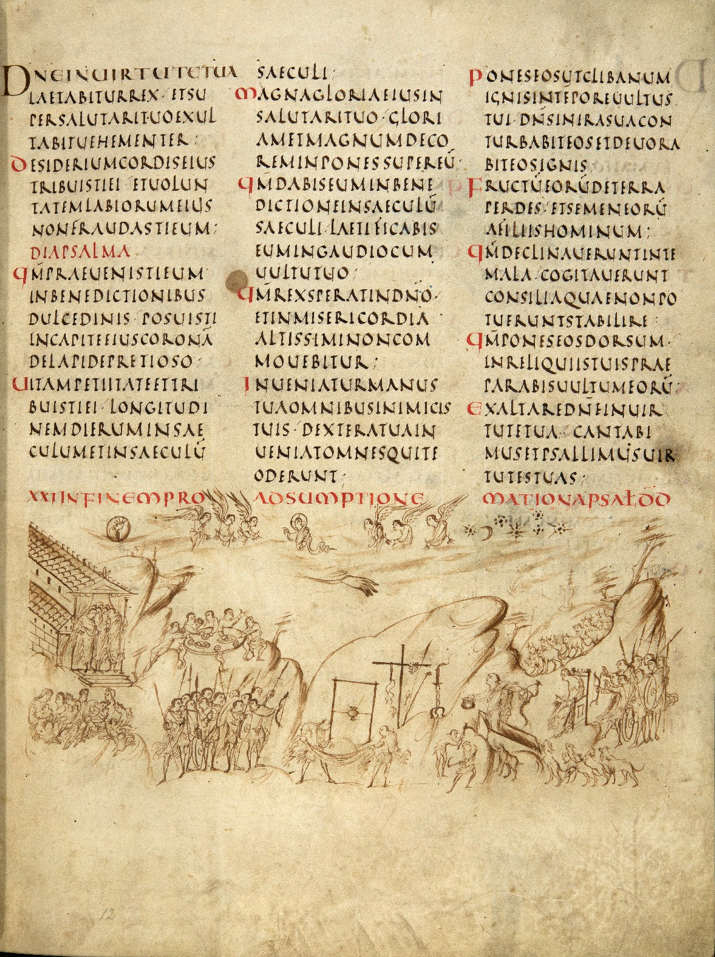 DNEINUIRTUTETUA
LAETABITURREX· ETSU
PERSALUTARITUOEXUL
TABITUEHEMENTER:
DESIDERIUMCORDISEIUS
TRIBUISTIEI· ETUOLUN
TATEMLABIORUMEIUS
NONFRAUDASTIEUM:
DIAPSALMA
QM̄PRAEUENISTIEUM
INBENEDICTIONIBUS
DULCEDINIS· POSUISTI
INCAPITEEIUSCORONĀ
DELAPIDEPRETIOSO·
UITAMPETIITATEETTRI
BUISTIEI· LONGITUDI
NEMDIERUMINSAE
CULUMETINSAECULŪ
SAECULI:
MAGNAGLORIAEIUSIN
SALUTARITUO· GLORI
AMETMAGNUMDECO
REMINPONESSUPEREŪ·
QM̄DABISEUMINBENE
DICTIONEINSAECULŪ
SAECULI· LAETIFICABIS
EUMINGAUDIOCUM
UULTUTUO:
QM̄REXSPERATINDNŌ·
ETINMISERICORDIA
ALTISSIMINONCOM
MOUEBITUR:
INUENIATURMANUS
TUAOMNIBUSINIMICIS
TUIS· DEXTERATUAIN
UENIATOMNESQUITE
ODERUNT:
PONESEOSUTCLIBANUM
IGNISINTĒPOREUULTUS
TUI· DN̄SINIRASUACON
TURBABITEOSETDEUORA
BITEOSIGNIS:
FRUCTŪEORŪDETERRA
PERDES· ETSEMENEORŪ
AFILIISHOMINUM:
QM̄DECLINAUERUNTINTE
MALA· COGITAUERUNT
CONSILIAQUAENONPO
TUERUNTSTABILIRE:
QM̄PONESEOSDORSUM·
INRELIQUIISTUISPRAE
PARABISUULTUMEORŪ:
EXALTAREDN̄EINUIR
TUTETUA· CANTABI
MUSETPSALLIMUSUIR
TUTESTUAS:
XXIINFINEMPRO ADSUMPTIONE MATIONAPSALDD
12